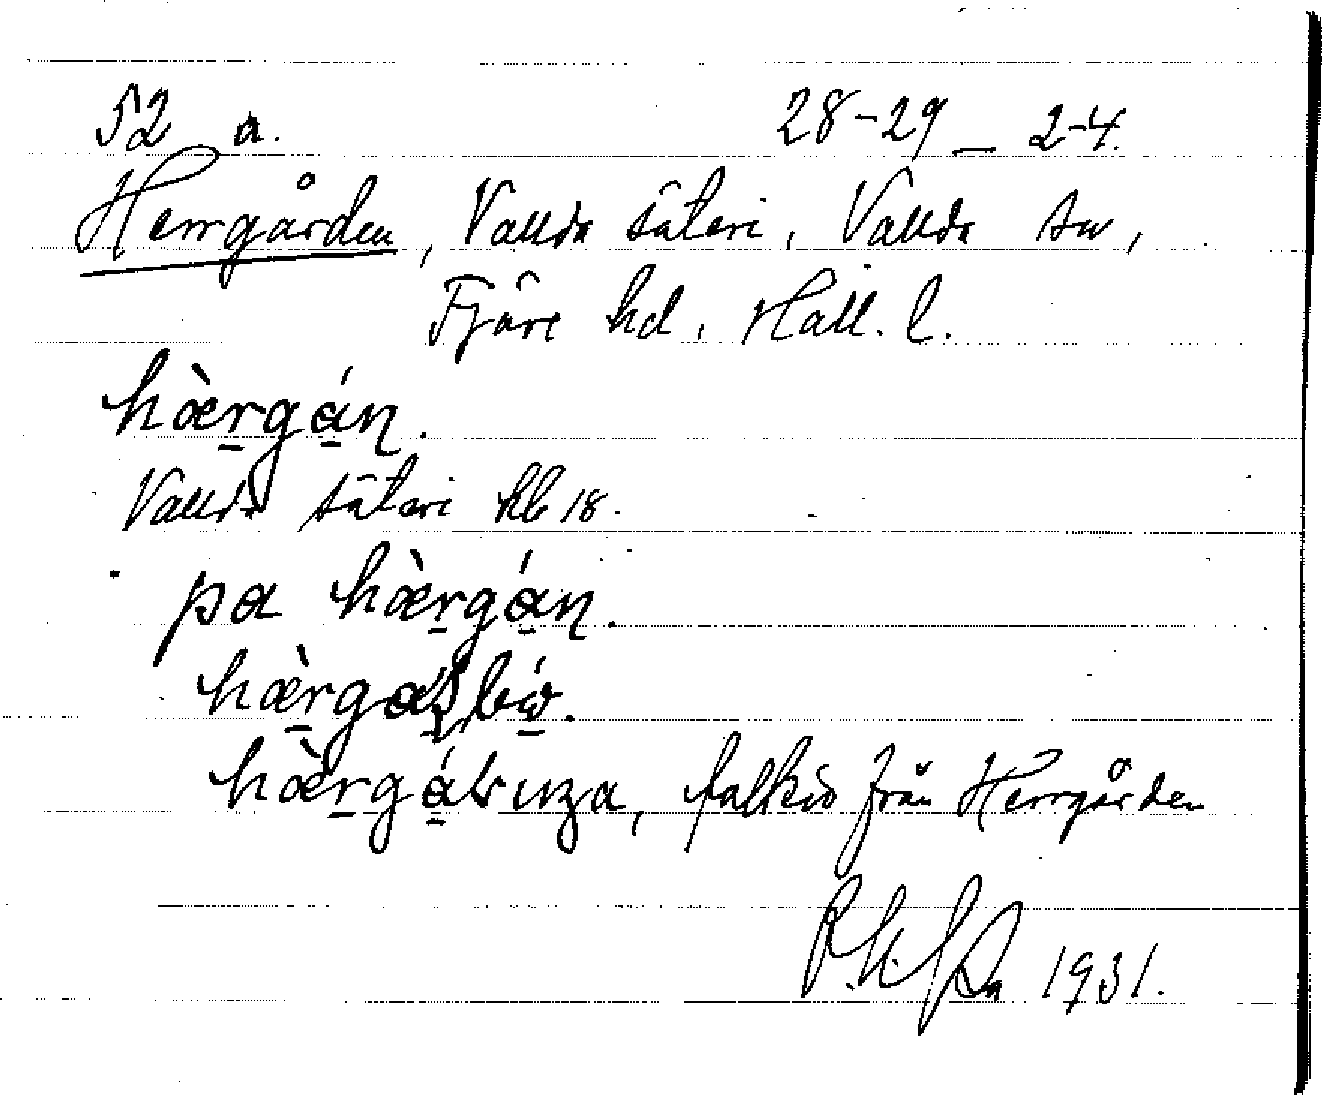 52 a. 28-29 _ 2-4.
Herrgården, Vallda säteri, Vallda sn,
Fjäre hd, Hall. l.
hæ̀rgán.
Vallda säteri hb 18.
pa hæ̀rgán.
hæ̀rga
hæ̀rgábuza, folket från Herrgården
1931.